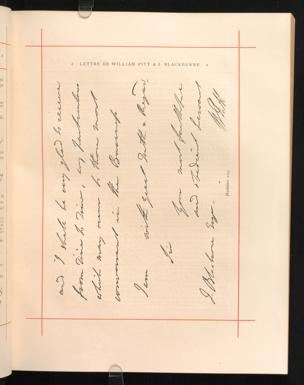 LETTRE DE WILLIAM PITT A J. BLACKBURNE
and I shall be very glad to receive
from Time to Time, any Particulars
which may occur to those most
conversant in the Business
I am with great Truth & Regard
Sir
Your most faithful
and obedient Servant
W Pitt
J. Blackburne Esqr.